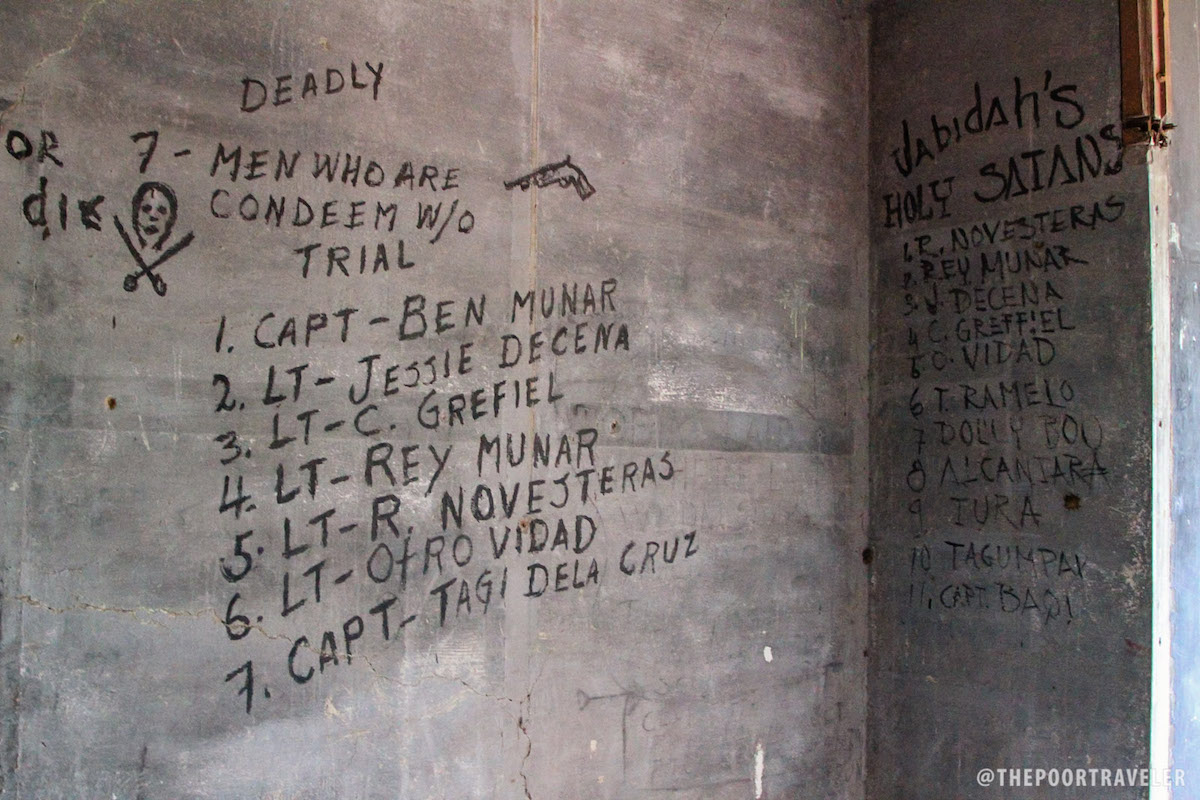 DEADLY
OR 7- MEN WHO ARE
die CONDEEM W/O
TRIAL
1. CAPT-BEN MUNAR
2. LT-JESSIE DECENA
3. LT-C. GREFIEL
4. LT-REY MUNAR
5. LT-R. NOVESTERAS
6. LT-OTRO VIDAD
7. CAPT-TAGI DELA CRUZ
Jabidah's
HOLY SATANS
1. R. NOVESTERAS
2. REY MUÑAR
3. J. DECENA
4 C. GREFFIEL
5. C. VIDAD
6 T. RAMELO
7 DOLLY
8 ALCANTARA
9 TURA
10 TAGUMPAY
11. CAPT. BAQI
@THEPOORTRAVELER